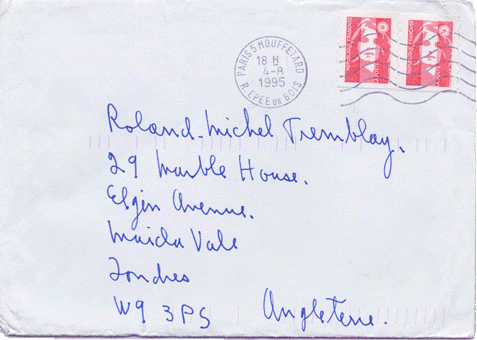 PARIS 5 MOUFFETARD
18 H
4-8
1995
R. EPEE DE BOIS
Roland-Michel Tremblay.
29 Marble House.
Elgin Avenue.
Maida Vale
Londres
W9 3PS Angleterre.